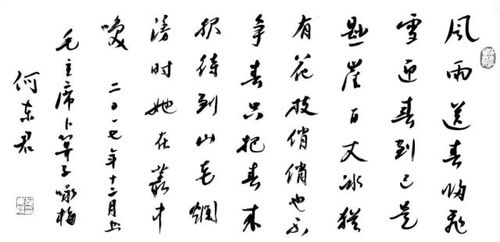 風雨送春归飛
雪迎春到已是
悬崖百丈冰猶
有花枝俏俏也不
争春只把春来
报待到山花爛
漫时她在叢中
咲 二〇一七年十二月上
毛主席卜算子咏梅
何东君